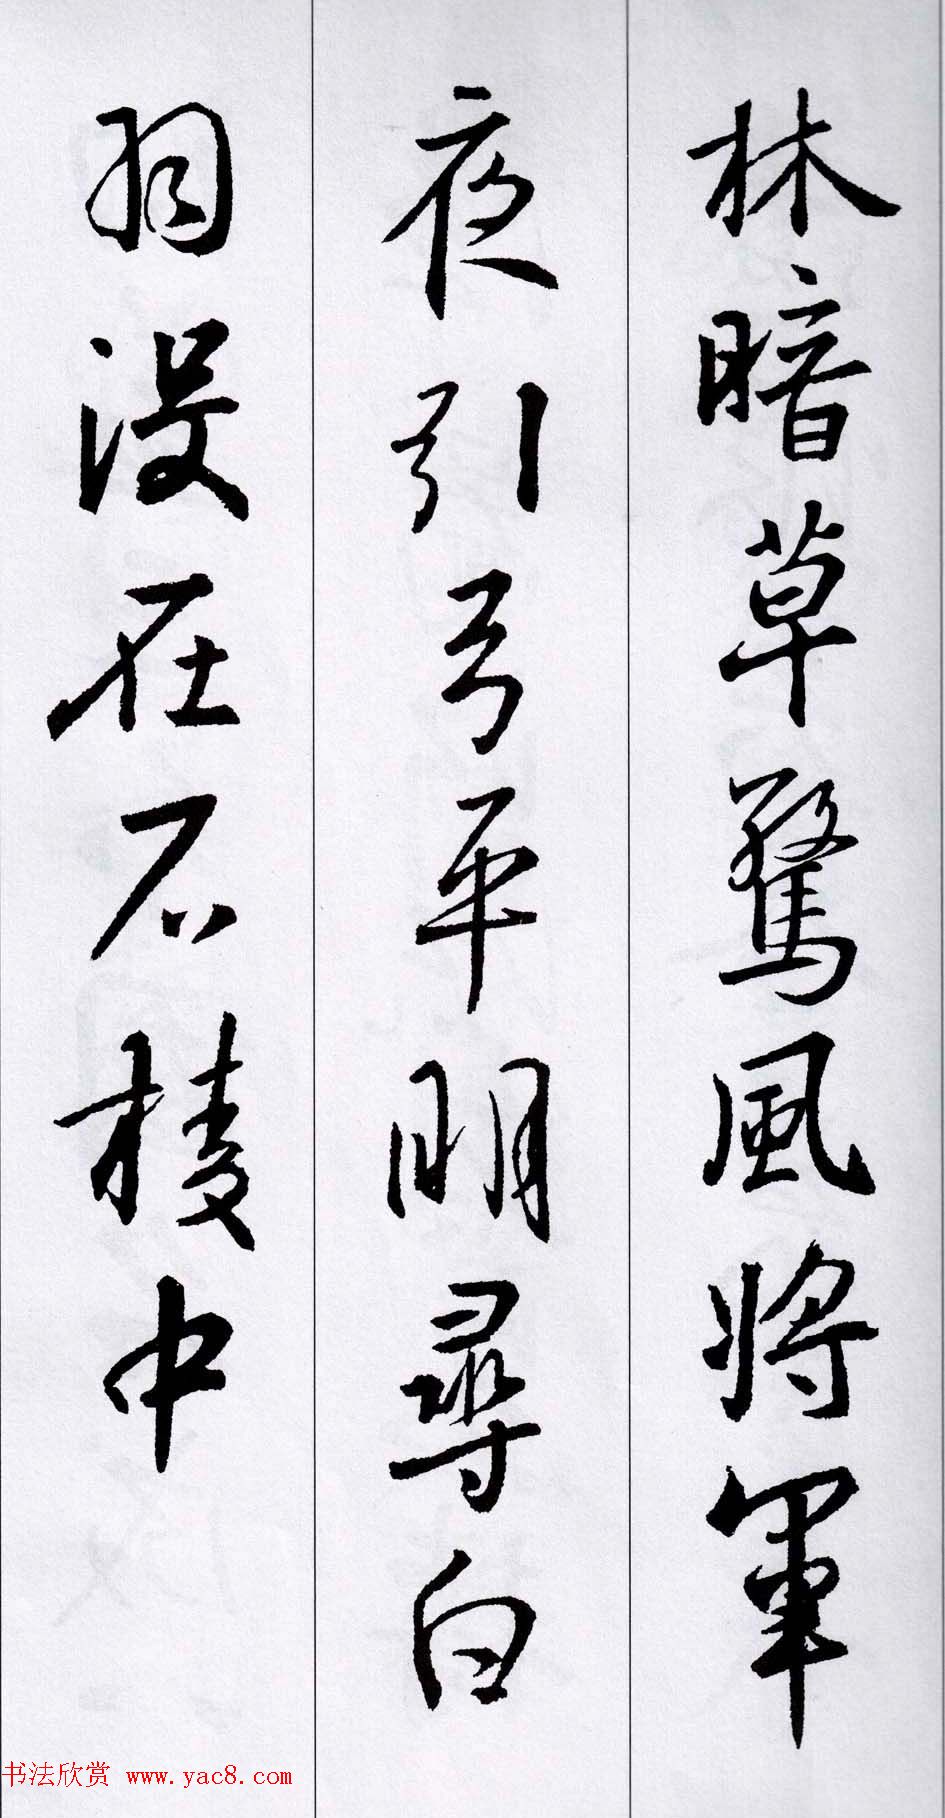 林暗草驚風將軍
夜引弓平明尋白
羽沒在石棱中
书法欣赏 www.yac8.com